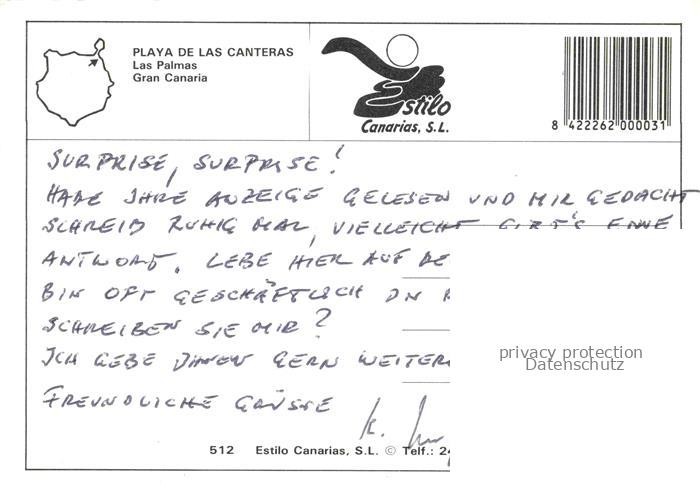 PLAYA DE LAS CANTERAS
Las Palmas
Gran Canaria
Estilo
Canarias, S.L.
8 422262 000031
SURPRISE, SURPRISE!
HABE IHRE ANZEIGE GELESEN UND MIR GEDACHT
SCHREIB RUHIG MAL, VIELLEICHT GIBT'S EINE
ANTWORT. LEBE HIER AUF
BIN OFT GESCHÄFTLICH IN
SCHREIBEN SIE MIR?
ICH GEBE IHNEN GERN WEITER
FREUNDLICHE GRÜSSE
K.
privacy protection
Datenschutz
512 Estilo Canarias, S.L. © Telf.: 2